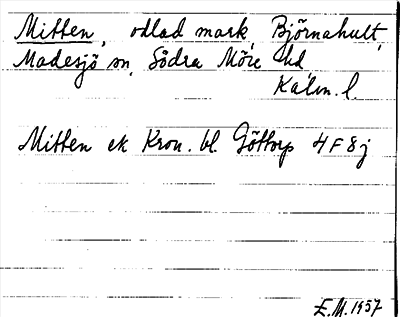 Mitten, odlad mark, Björnahult,
Madesjö sn, Södra Möre hd
Kalm. l.
Mitten ek Kron. bl. Göttorp 4F8j
E.M. 1957